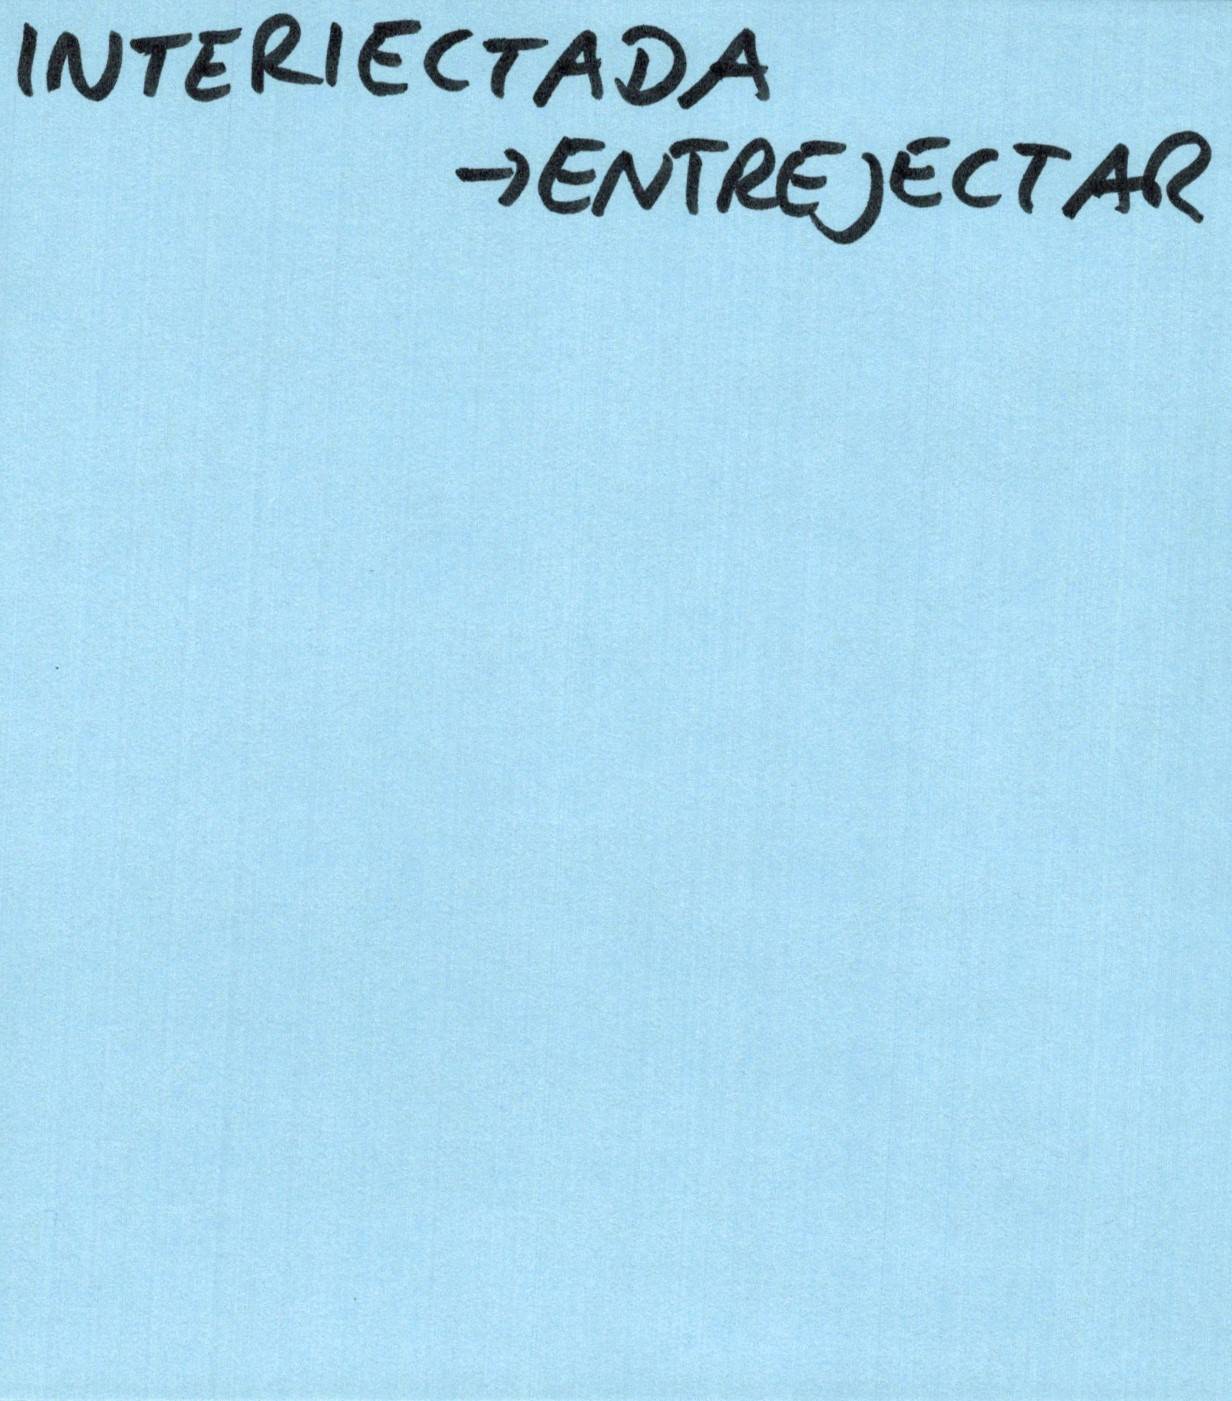 INTERIECTADA
→ENTREJECTAR